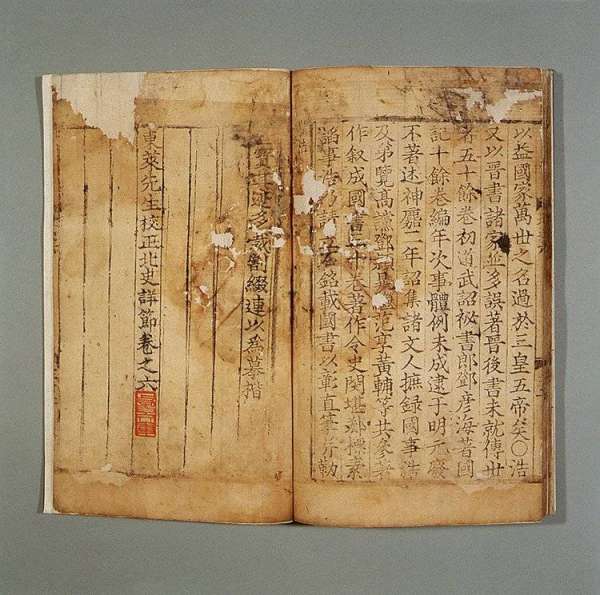 以益國家萬世之名過於三皇五帝矣〇浩
又以晉書諸家並多誤著晉後書未就傳世
者五十餘卷初道武詔祕書郎鄧彦海著國
記十餘卷編年次事體例未成逮于明元廢
不著述神䴥二年詔集諸文人撫録國事浩
及弟覽髙讜鄧范享黃輔等共參著
作叙成國書三十卷著作令史閔堪郄標素
謟事浩乃請石銘載國書以彰直筆并勒
迹多裁割綴連以爲摹楷
東萊先生校正北史詳節卷之六